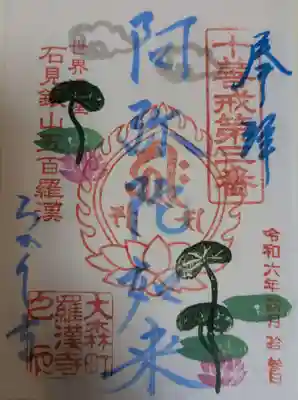 奉拝
十善戒第二番
令和六年
阿弥陀如来
世界遺産
石見銀山五百羅漢
らかんじ
大森町
羅漢寺